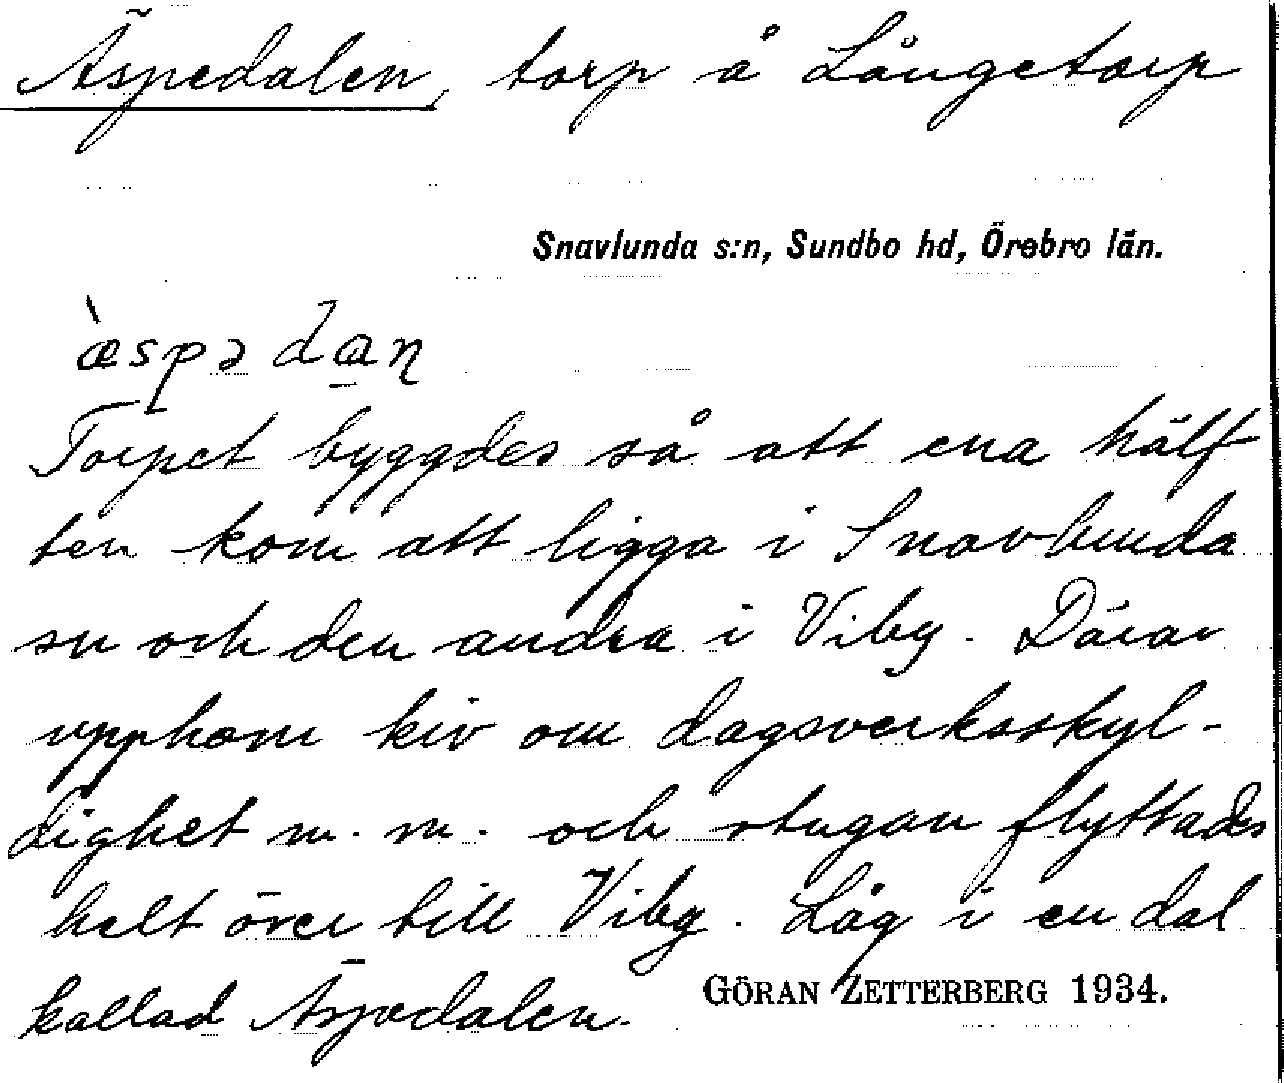 Äspedalen, torp å Långetorp
Snavlunda s:n, Sundbo hd, Örebro län.
æ̀spədan
Torpet byggdes så att ena hälf
ten kom att ligga i Snavlunda
sn och den andra i Viby. Därav
uppkom kiv om dagsverksskyl-
dighet m. m. och stugan flyttades
helt över till Viby. Låg i en dal
kallad Äspedalen.
GÖRAN ZETTERBERG 1934.